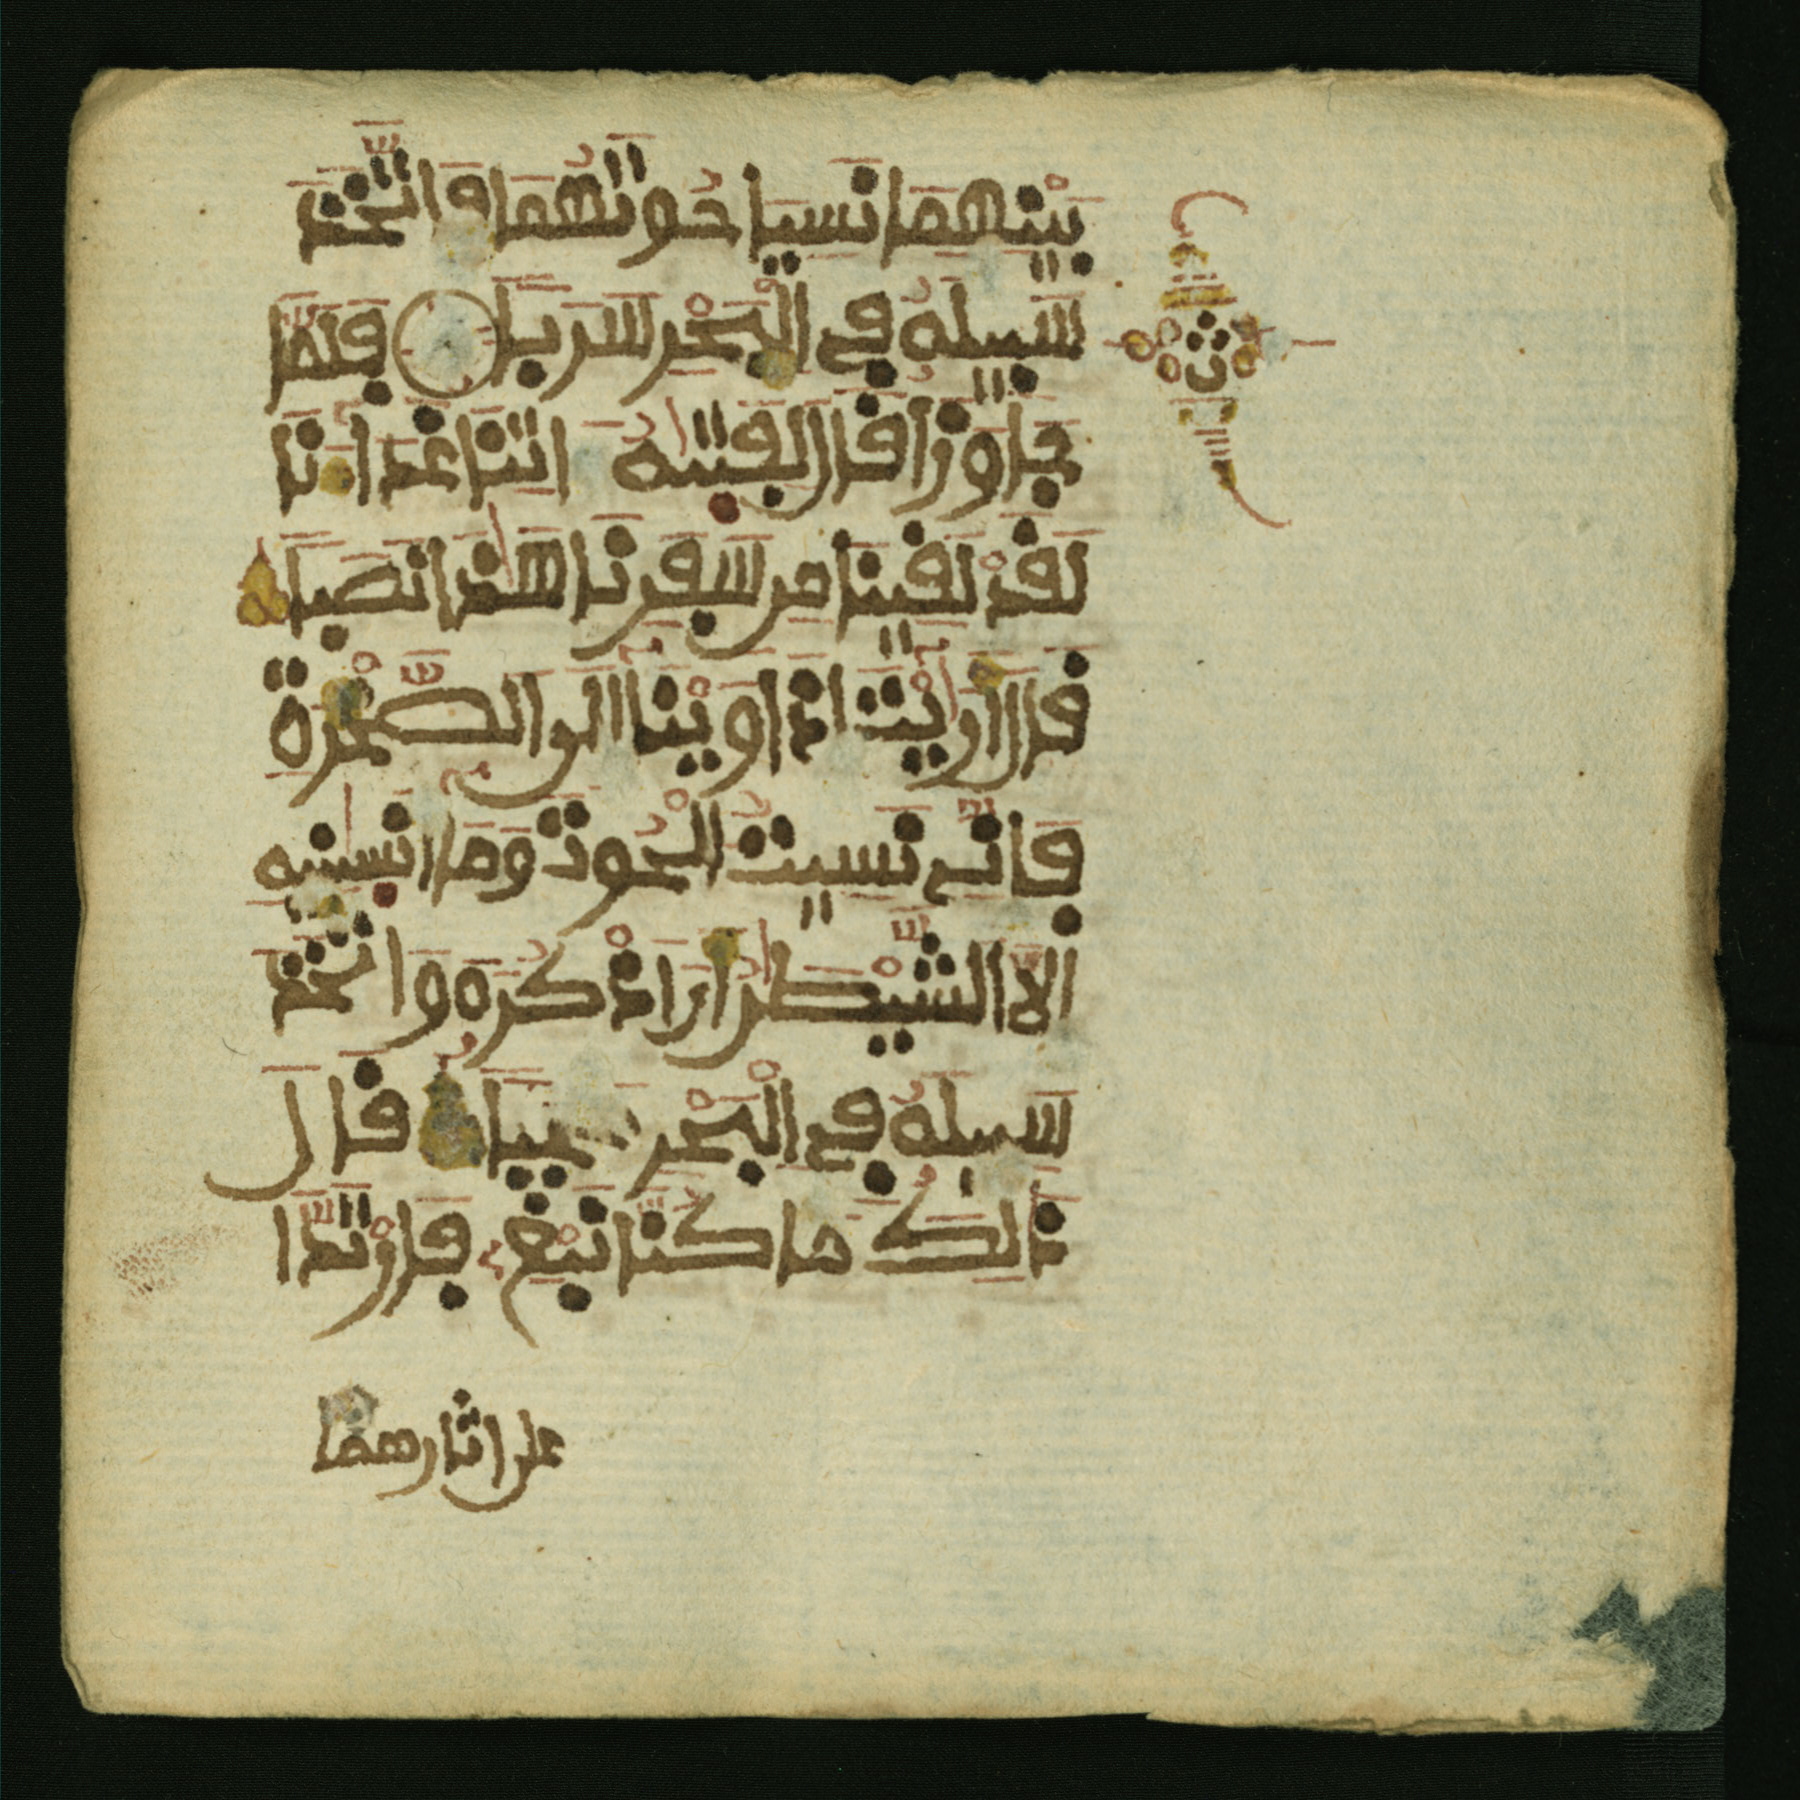 بينهما نسيا حوتهما فاتخذ
سبيله في البحر سربا فلما
جاوزا قال لفتيه اتنا غدانا
لقد لقينا من سفرنا هذا نصبا
قال ارايت اذ اوينا الى الصخرة
فاني نسيت الحوت وما انسنيه
الا الشيطن ان اذكره واتخذ
سبيله في البحر عجبا قال
ذالك ما كنا نبغ فارتدا
على اثارهما